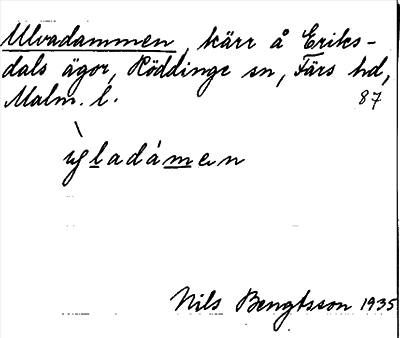 Ulvadammen, kärr å Eriks-
dals ägor, Röddinge sn, Färs hd,
Malm. l. 87
Nils Bengtsson 1935